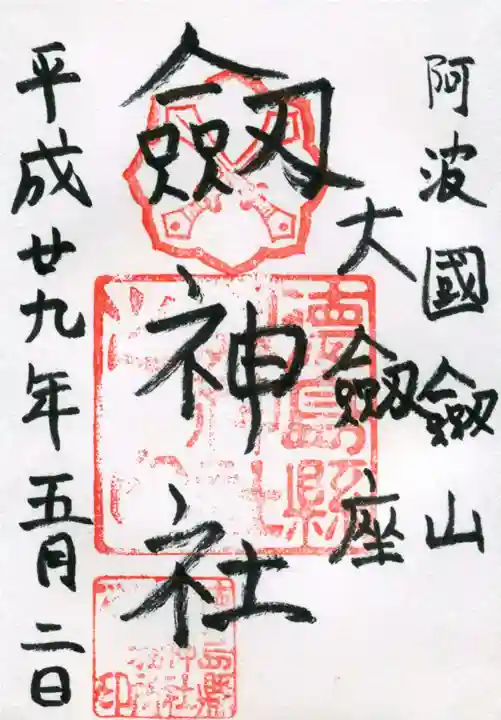 阿波國劔山
大劔座
劔神社
平成廿九年五月二日
德島縣